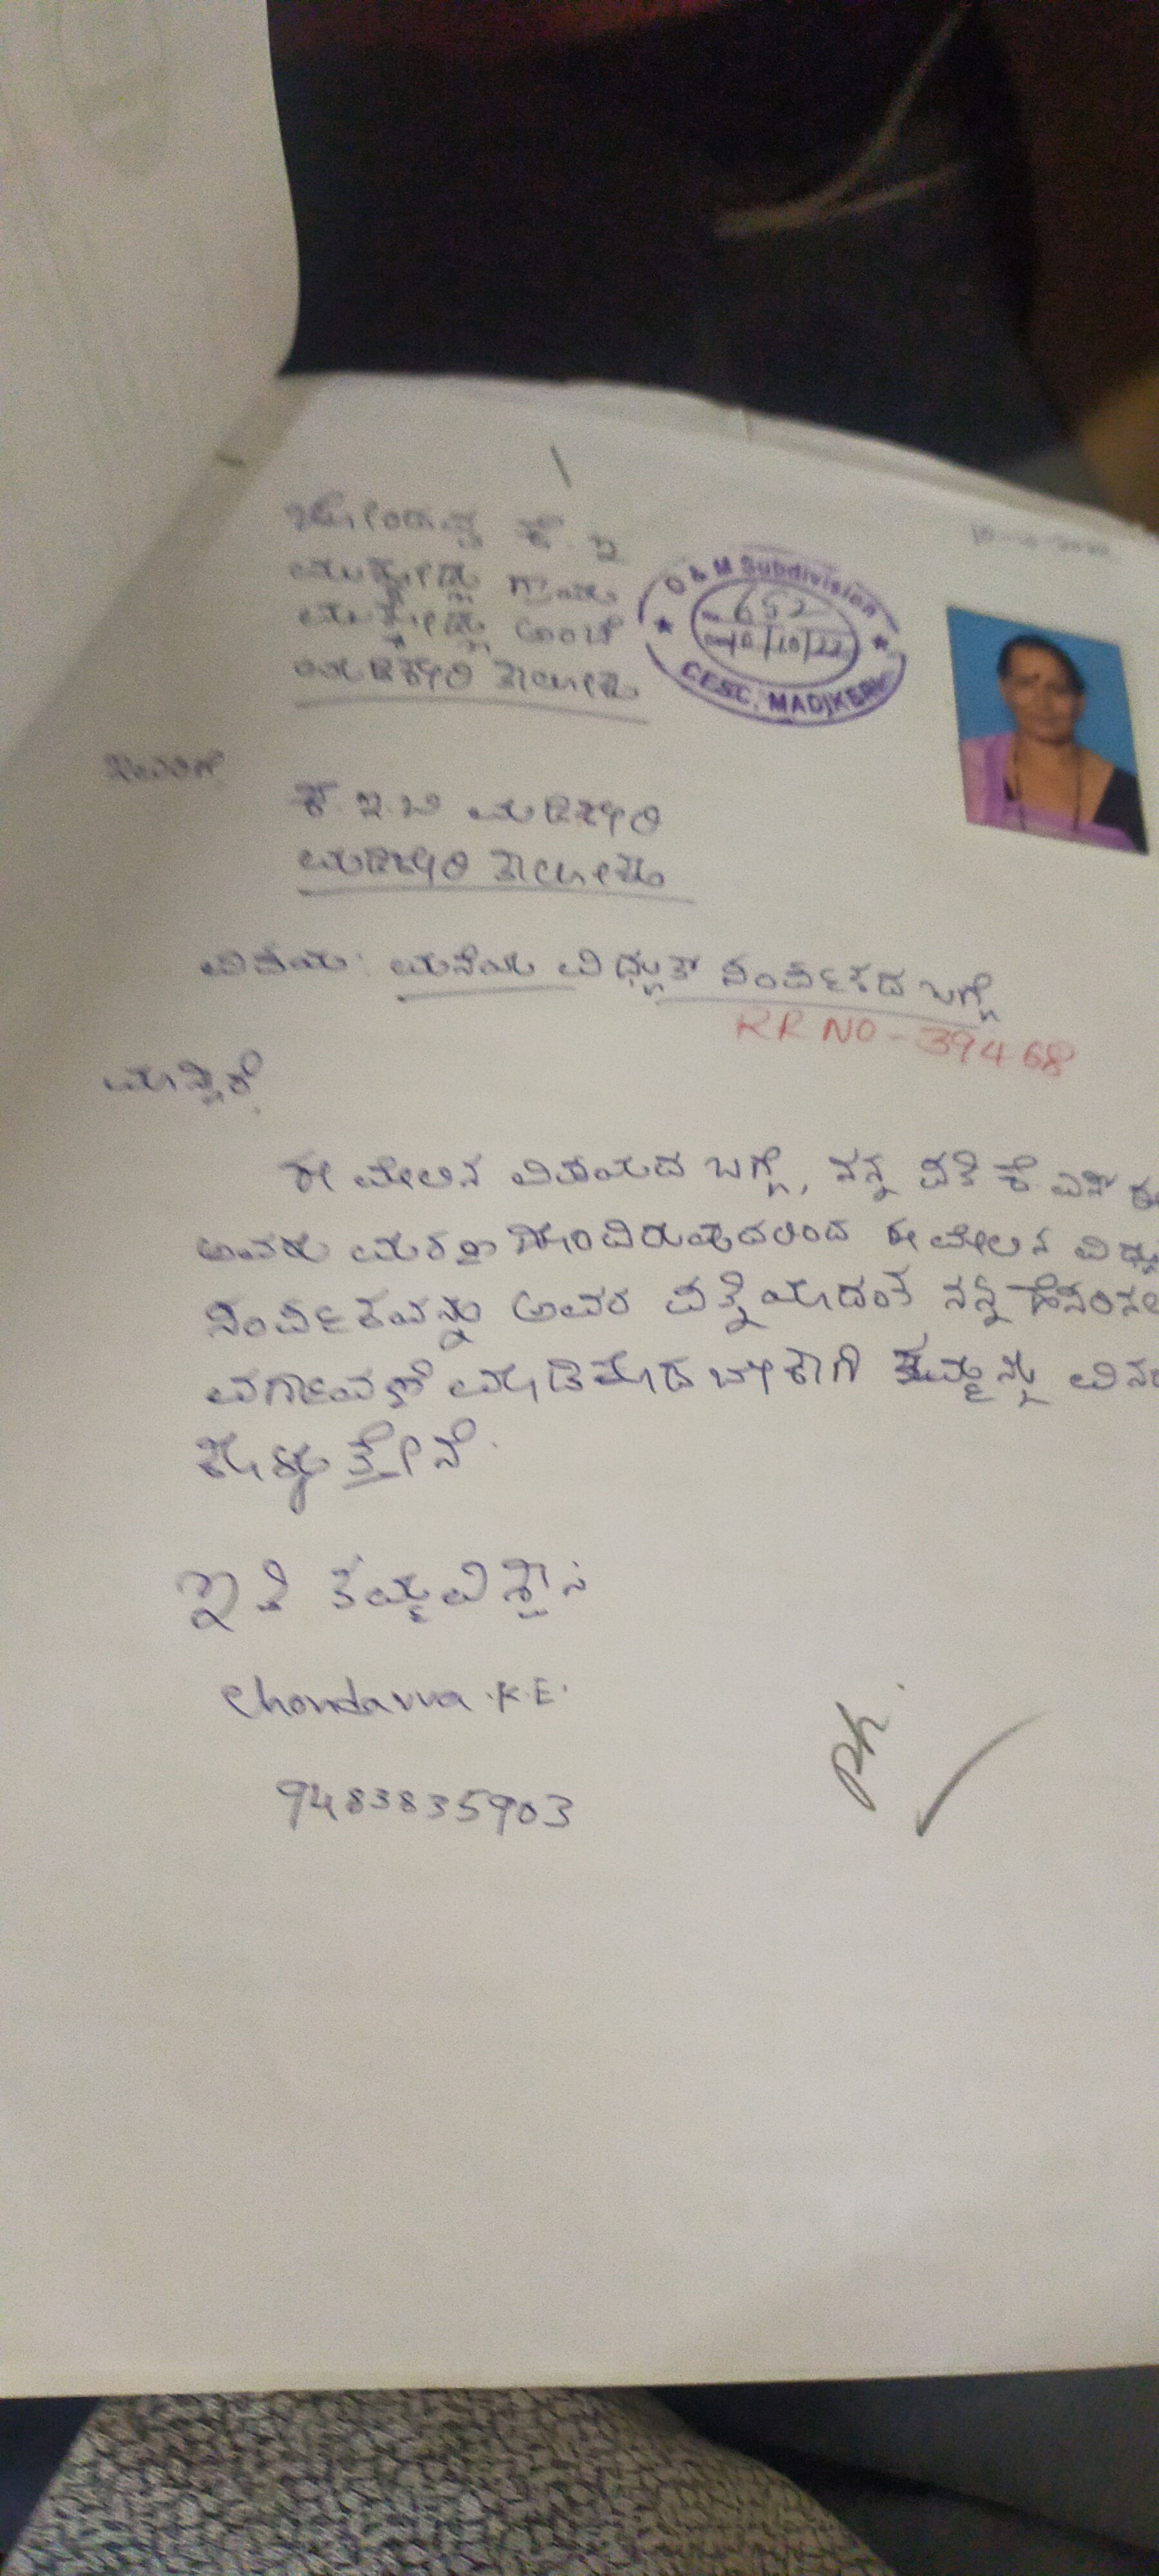 ಕೆ. ಇ
ಮಡಿಕೇರಿ ತಾಲೂಕು
O & M Subdivision
No 652
Date 10/10/22
CESC, MADIKERI
ಇವರಿಗೆ
ಕೆ. ಇ. ಬಿ ಮಡಿಕೇರಿ
ಮಡಿಕೇರಿ ತಾಲೂಕು
ವಿಷಯ: ಮನೆಯ ವಿಧ್ಯುತ್ ಸಂಪರ್ಕದ ಬಗ್ಗೆ
RR NO - 39468
ಮಾನ್ಯರೆ,
ಈ ಮೇಲಿನ ವಿಷಯದ ಬಗ್ಗೆ, ನನ್ನ ಪತಿ ಕೆ ಎಸ್
ಅವರು ಮರಣ ಹೊಂದಿರುವುದರಿಂದ ಈ ಮೇಲಿನ
ಸಂಪರ್ಕವನ್ನು ಅವರ ಪತ್ನಿಯಾದಂತ ನನ್ನ
ವರ್ಗಾವಣೆ ಮಾಡಿಕೊಡಬೇಕಾಗಿ ತಮ್ಮನ್ನು
ಕೋರುತ್ತೇನೆ.
ಇತಿ ತಮ್ಮ ವಿಶ್ವಾಸಿ
Chondavva .K.E.
9483835903
ph.